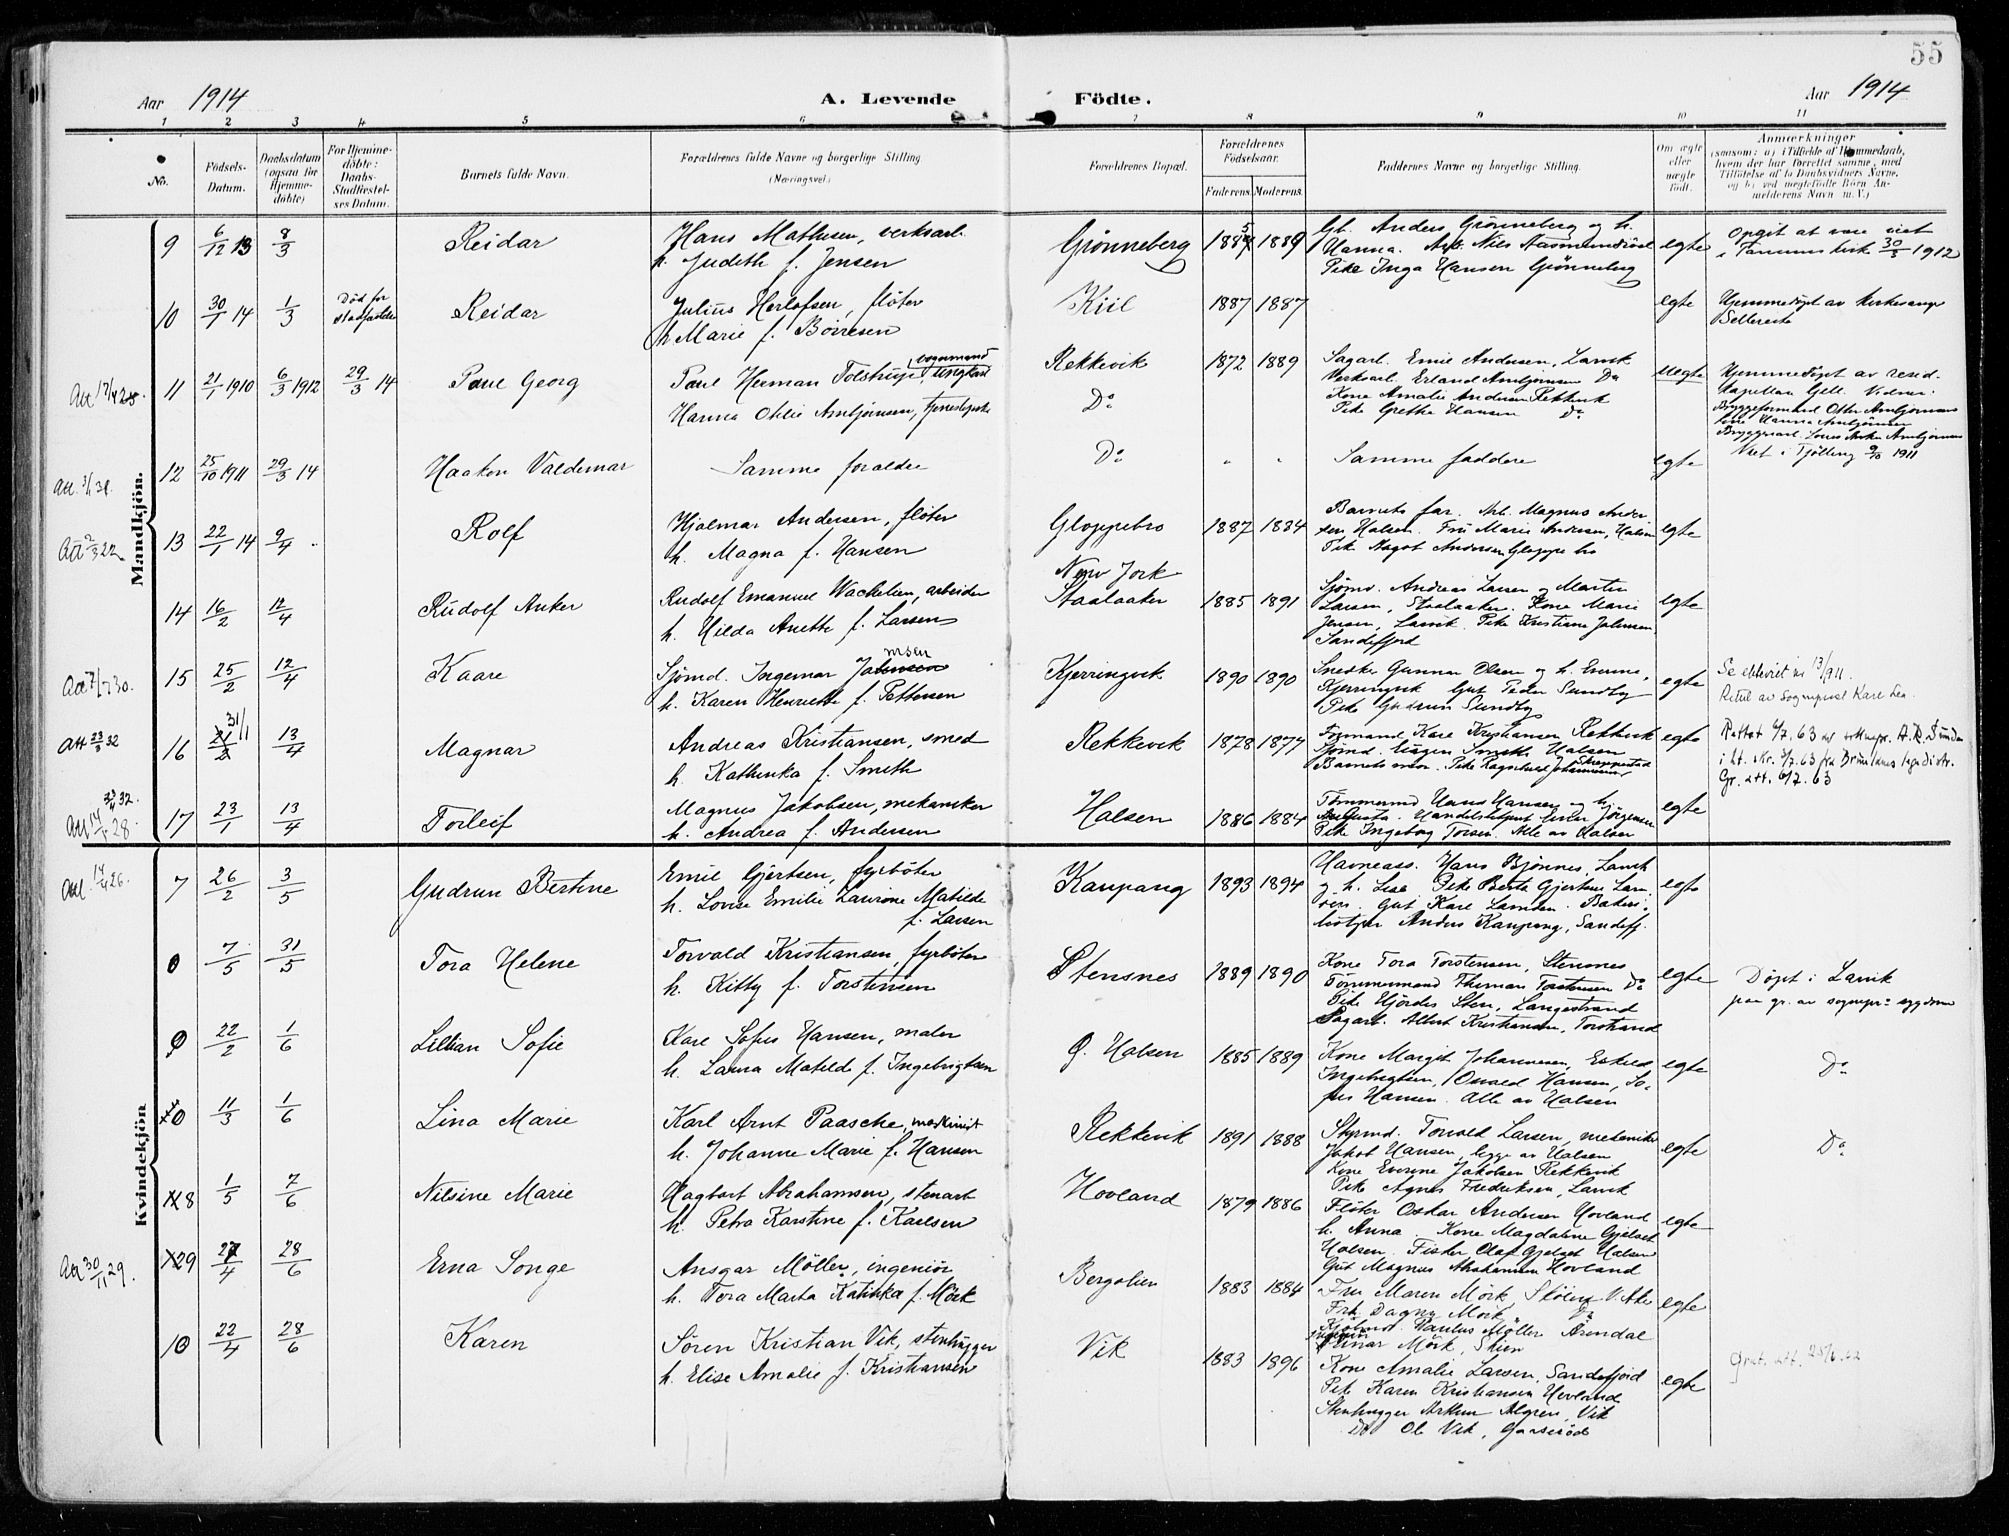 55
Aar 1914 A. Levende Födte. Aar 1914
1 2 3 4 5 6 7 8 9 10 11
No.
Födsels-
Datum.
Daabsdatum
(ogsaa for
Hjemme-
döbte)
For Hjemme-
döbte:
Daabs-
Stadfæstel-
ses Datum.
Barnets fulde Navn.
Forældrenes fulde Navne og borgerlige Stilling.
(Næringsvei.)
Forældrenes Bopæl.
Forældrenes
Fødselsaar.
Faderens. Moderens.
Faddernes Navne og borgerlige Stilling.
Om ægte
eller
uægte
født.
Anmærkninger
(saasom: a) i Tilfælde af Hjemmedaab,
hvem der har forrettet samme, med
Tilföielse af to Daabsvidners Navne,
og b) ved uægtefödte Börn An-
melderens Navn m. V.)
Mandkjön.
9 6/12 13 8/3 Reidar
Hans Mathisen, verksarb.
h. Judith f. Jensen
Grønneberg 1885 1889
Gb. Anders Grønneberg og h.
Hanna. Arb. Nils
Pike Inga Hansen Grønneberg
egte
Opgit at være viet
i Tanum kirk 30/3 1912
10 30/1 14 1/3 Død før
Reidar
Julius Herlofsen, fløter
h. Marie f. Børresen
Kiil 1887 1887
egte
Hjemmedøpt av kirkesanger
11 21/1 1910 6/3 1912 29/3 14 Paul Georg
Paul Herman Tolstrup, ungkarl
Hanna Otilie Arnbjørnsen, tjenestepike
Rekkevik 1872 1889
Do
Sagarb. Emil Andersen, Larvik
Verksarb. Erland Arnbjørnsen Do
Kone Amalie Andersen Rekkevik
Pike Grethe Hansen Do
uegte
Hjemmedøpt av resid.
kapellan Gjell. Vidner:
Bryggeformand Otter Arnbjørnsen
kone Hanna Arnbjørnsen
12 25/10 1911 29/3 14 Haakon Valdemar
Samme foraldre
Do " "
Samme faddere
egte
Viet i Tjølling 9/10 1911
Att. 2/3 22
13 22/1 14 9/4 Rolf
Hjalmar Andersen, fløter
h. Magna f. Hansen
Gloppebro 1887 1884
Barnets far. Arb. Magnus Ander
sen Halsen. Fru Marie Andersen, Halsen
Pike Magot Andersen Gloppe bro
egte
14 16/2 12/4 Rudolf Anker
Rudolf Emanuel Wachelien, arbeider
h. Hilda Anette f. Larsen
New Jork
Staalaaker 1885 1891
Sjømd. Andreas Larsen og Martin
Larsen, Staalaaker. Kone Marie
Jensen, Larvik. Pike Kristiane Johnsen
Sandefjord
egte
Att 7/7 30.
15 25/2 12/4 Kaare
Sjømd. Ingemar
h. Karen Henriette f. Pettersen
Kjerringvik 1890 1890
Snedker Gunnar Olsen og h. Emma,
Kjerringvik Gut Peder Sundby
Pike Gudrun Sundby
egte
Att 23/3 32
16 31/1 13/4 Magnar
Andreas Kristiansen, smed
h. Kathinka f. Smith
Rekkevik 1878 1877
Formand Kare Kristiansen Rekkevik
Sjømd. Hagen Smith Halsen
Barnets mor. Pike Ragnhild Johannesen,
egte
Rettet 6/7. 63
Gr. att. 6/7. 63
17 23/1 13/4 Torleif
Magnus Jakobsen, mekaniker
h. Andrea f. Andersen
Halsen 1886 1884
Tømmermd Hans Hansen og h.
Augusta. Handelsbetjent Einar Jørgensen
Pike Ingeborg Torsen. Alle av Halsen
egte
Kvindekjön
7 26/2 3/5 Gudrun Bertine
Emil Gjertsen, fyrbøter
h. Lovise Emilie Laurine Matilde
f. Larsen
Kaupang 1893 1894
Havneass. Hans Bjønnes, Larvik
og h. Lise. Pike Berta Gjertsen Lar
vik. Gut Karl Larsen. Bakeri-
betjent Anders Kaupang, Sandefj.
egte
7/5 31/5 Tora Helene
Torvald Kristiansen, fyrbøter
h. Kitty f. Torstensen
Stensnes 1889 1890
Kone Tora Torstensen, Stensnes
Tømmermand Thomas Torstensen Do
Pike Hjørdis Sten, Langestrand
Sagarb. Albert Kristiansen, Torstrand
egte
Døpt i Larvik
paa gr. av sognepr:s sygdom
9 22/2 1/6 Lillian Sofie
Karl Sofus Hansen, maler
h. Laura Matilde f. Ingebrigtsen
Ø. Halsen 1885 1889
Kone Margit Johannesen, Eskild
Ingebrigtsen, Osvald Hansen, So-
fus Hansen. Alle av Halsen
egte
Do
10 11/3 1/6 Lina Marie
Karl Arnt Paasche, maskinist
h. Johanne Marie f. Hansen
Rekkevik 1891 1888
Torvald Larsen, mekaniker
Jakob Hansen, begge av Halsen
Kone Evenne Jakobsen Rekkevik
Pike Agnes Fredriksen, Larvik
egte
Do
8 1/5 7/6 Nilsine Marie
Hagbart Abrahamsen, stenarb
h. Petra Karstine f. Karlsen
Hovland 1879 1886
Fløter Oskar Andersen Hovland
h. Anna. Kone Magdalene Gjelset
Halsen. Fisker Olaf Gjelset Halsen
Gut Magnus Abrahamsen Hovland
egte
Att 30/11 29.
9 27/4 28/6 Erna Songe
Ansgar Möller, ingeniør
h. Tora Marta Katinka f. Mörk
Bergslien 1883 1884
Fru Maren Mörk, Skøien V. Aker
Frk. Dagny Mörk Do
Paulus Möller Arendal
Einar Mörk, Skien
egte
10 22/4 28/6 Karen
Søren Kristian Vik, stenhugger
h. Elise Amalie f. Kristiansen
Vik 1883 1896
Kone Amalie Larsen, Sandefjord
Pike Karen Kristiansen Hovland
Stenhugger Arthur Algren, Vik
Do Ole Vik,
egte